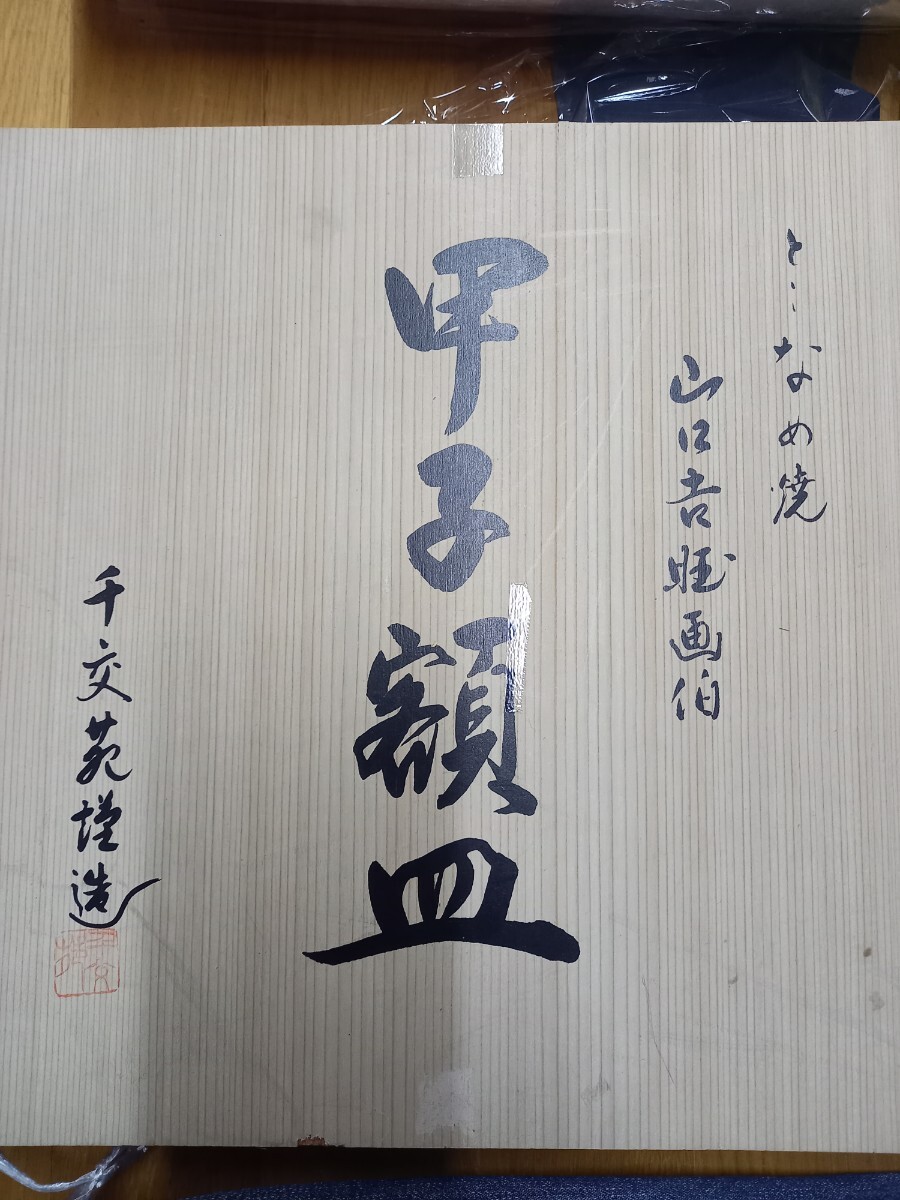 とこなめ焼
山口吉旺画伯
甲子額皿
千交苑謹造